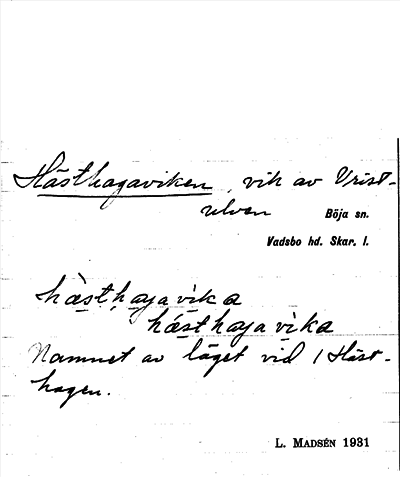 Hästhagaviken, vik av Vrist-
ulven Böja sn.
Vadsbo hd. Skar. l.
hàsthagavika
hásthagavika
Namnet av läget vid / Häst-
hagen.
L. MADSÉN 1931